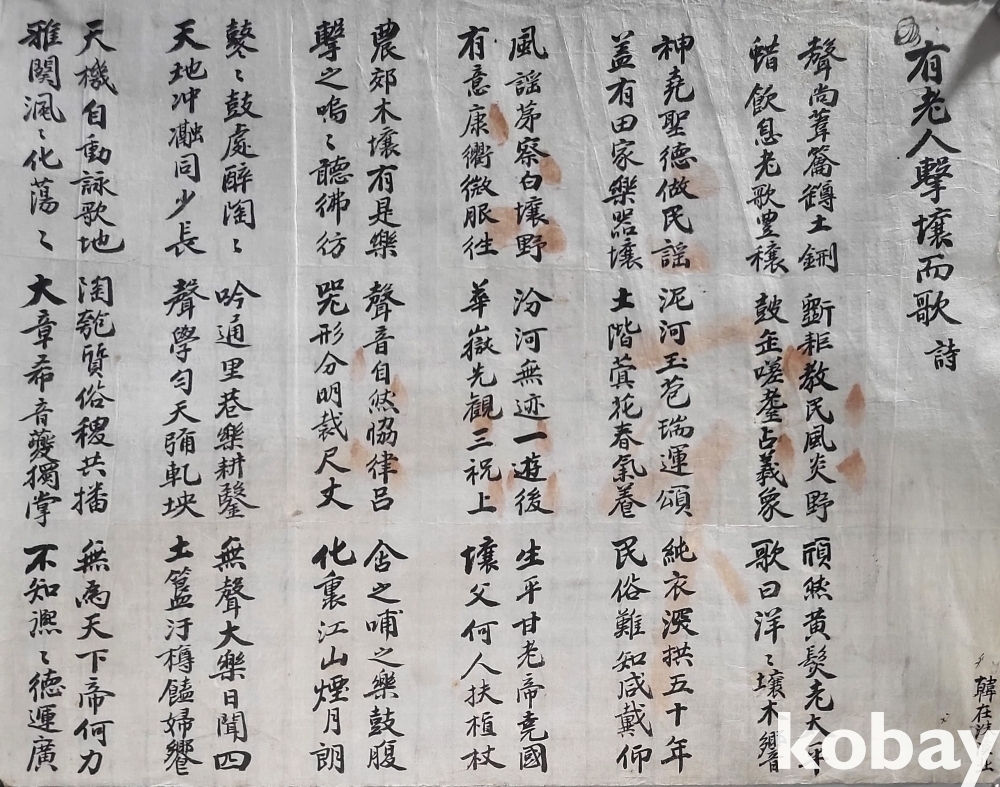 有老人擊壤而歌 詩
聲尚葦籥鐏土鉶 斵耒敎民風炎野 頎然黃髮老大耳
蜡飮息老歌豊穰 皷缶嗟耋占羲象 歌曰洋〻壤木響
神堯聖德倣民謡 泥河玉苞瑞運頌 純衣深拱五十年
盖有田家樂器壤 土階蓂花春氣養 民俗難知咸戴仰
風謡茅察白壤野 汾河無迹一遊後 生平甘老帝堯國
有意康衢微服徃 華嶽先觀三祝上 壤父何人扶植杖
農郊木壤有是樂 聲音自然恊律呂 含之哺之樂鼓腹
擊之嗚〻聽彿彷 咒形分明裁尺丈 化裏江山煙月朗
鼕〻鼓處醉陶〻 吟通里巷樂耕鑿 無聲大樂日聞四
天地冲瀜同少長 聲學勻天彌軋坱 土簋汙樽饁婦饗
天機自動詠歌地 陶匏質俗稷共播 無爲天下帝何力
雅閧渢〻化蕩〻 大章希音夔獨掌 不知凞〻德運廣
韓在
kobay